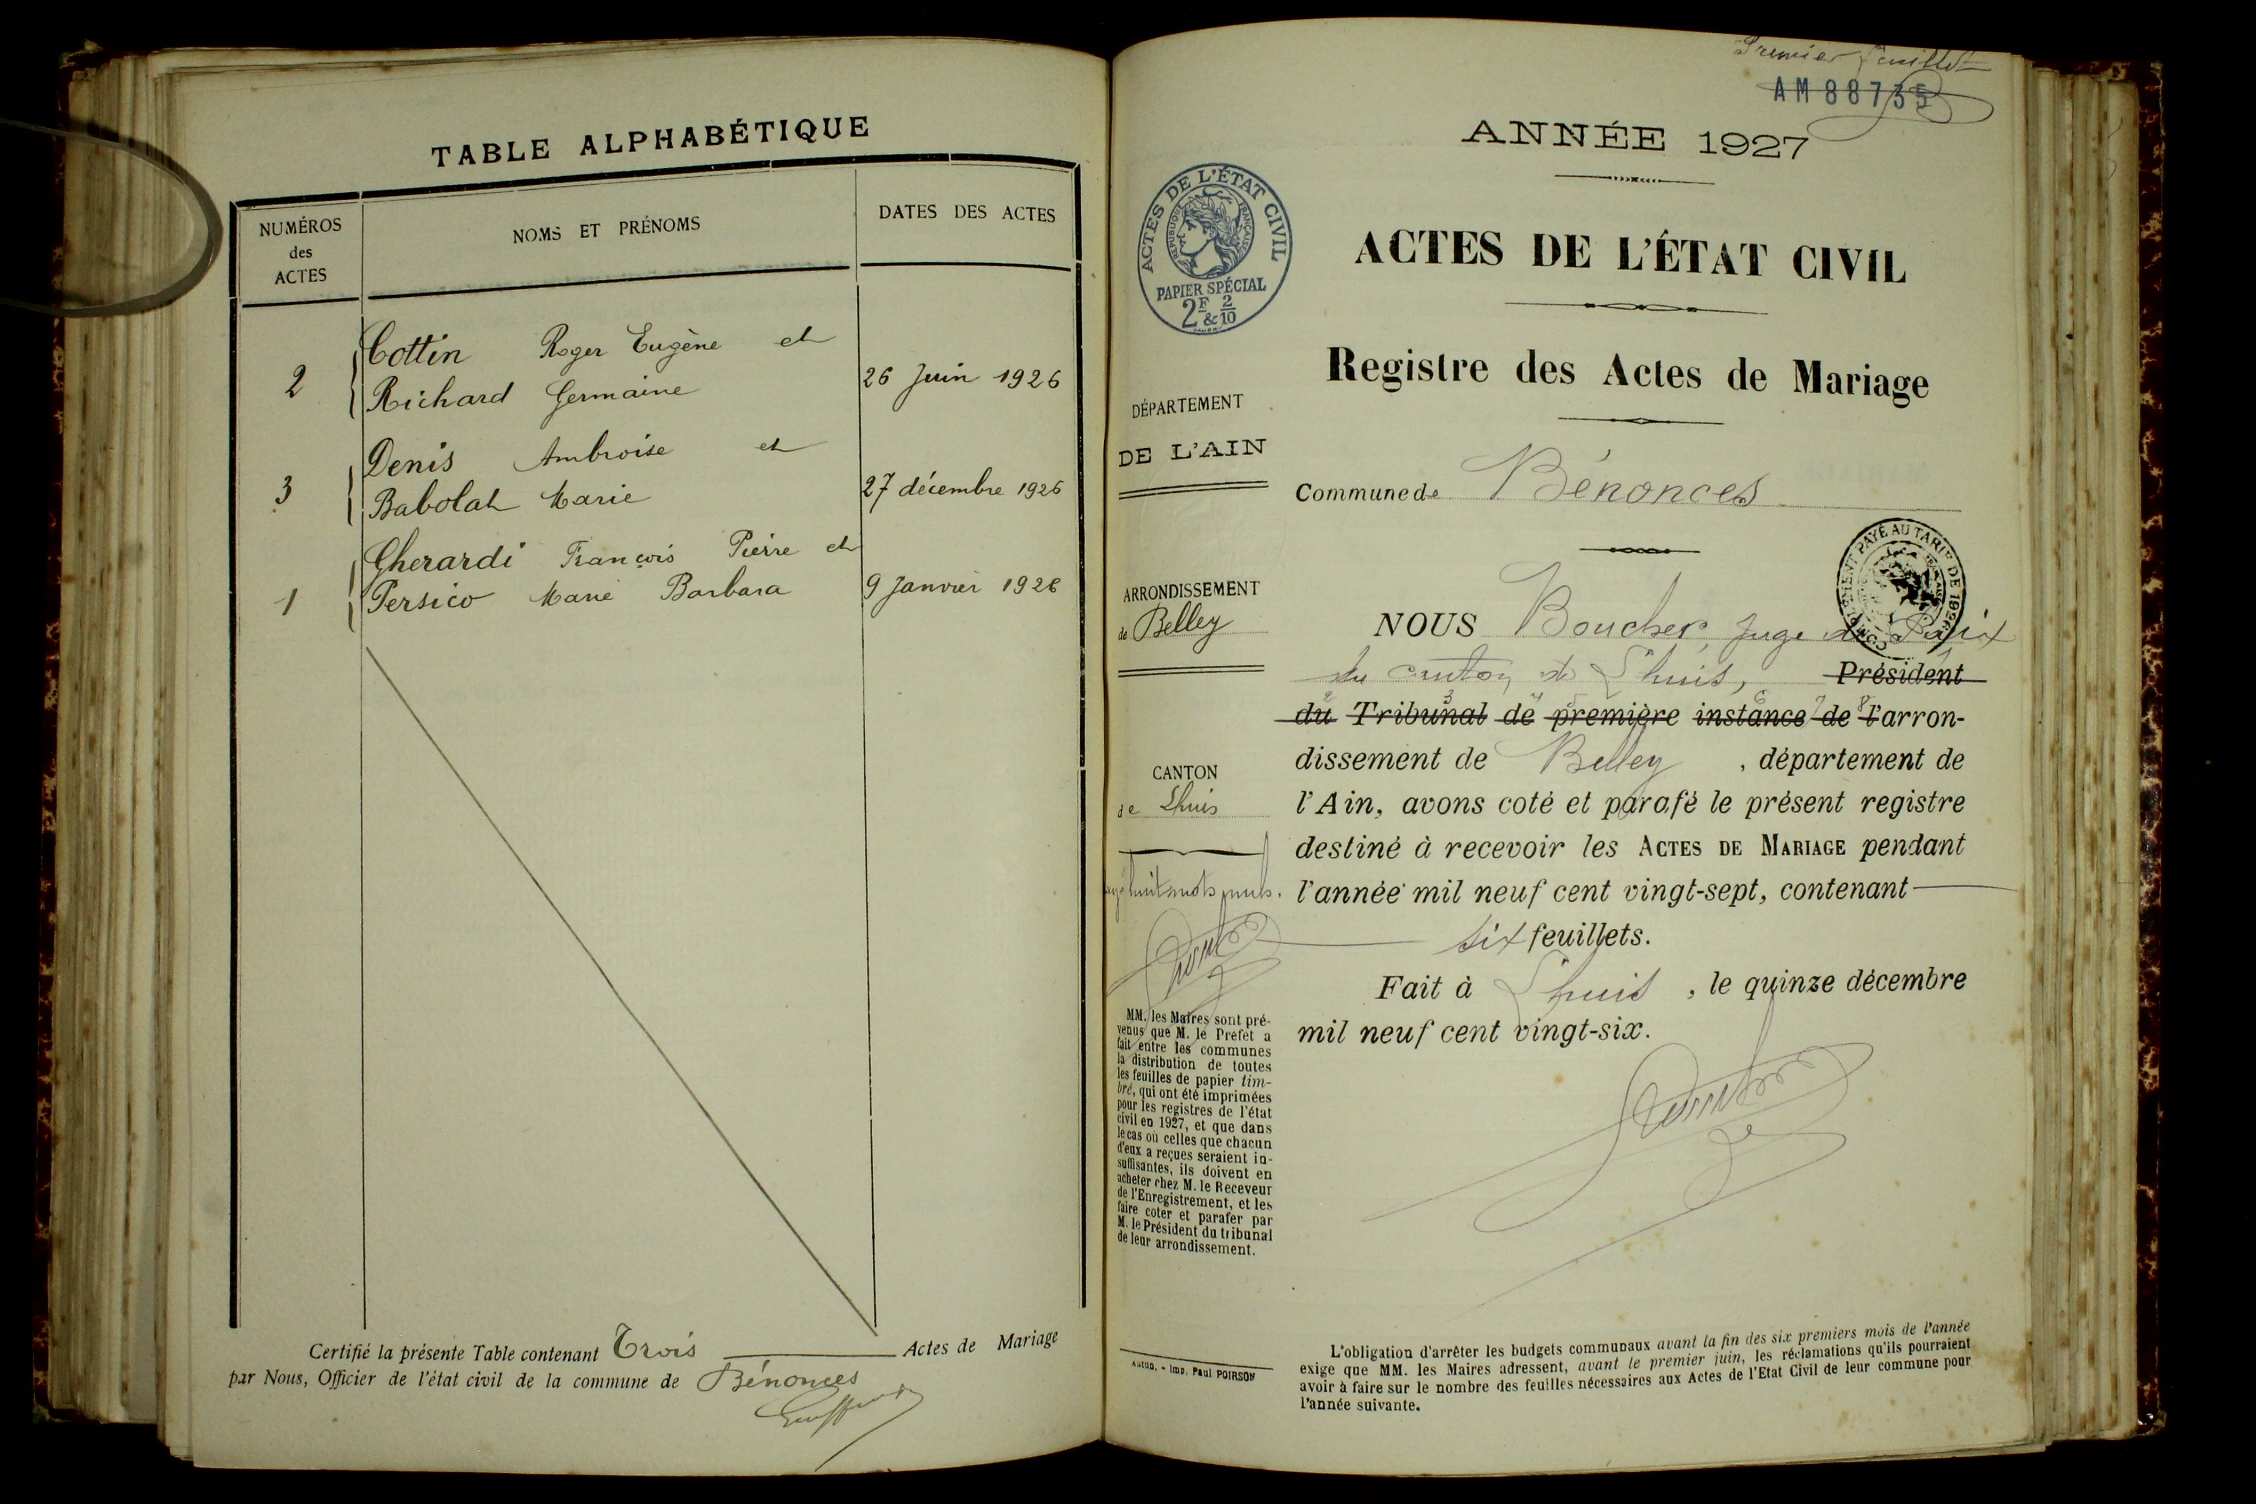 TABLE ALPHABÉTIQUE
NUMÉROS
des
ACTES
NOMS ET PRÉNOMS
DATES DES ACTES
Cottin Roger Eugène et
2 Richard Germaine 26 Juin 1926
Denis Ambroise et
3 Babolat Marie 27 décembre 1926
Gherardi François Pierre et
1 Persico Marie Barbara 9 Janvier 1926
Certifié la présente Table contenant Trois Actes de Mariage
par Nous, Officier de l'état civil de la commune de Bénonces
Premier feuillet
AM 88735
ANNÉE 1927
ACTES DE L'ÉTAT CIVIL
RÉPUBLIQUE FRANÇAISE
PAPIER SPÉCIAL
2F & 2/10
ACTES DE L'ÉTAT CIVIL
Registre des Actes de Mariage
DÉPARTEMENT
DE L'AIN
Commune de Bénonces
COMPLÉMENT PAYÉ AU TARIF DE 1926
ARRONDISSEMENT
de Belley
CANTON
de Lhuis
NOUS Boucher, Juge de Paix
du canton de Lhuis, Président
du Tribunal de première instance de l'arron-
dissement de Belley, département de
l'Ain, avons coté et parafé le présent registre
destiné à recevoir les ACTES DE MARIAGE pendant
l'année mil neuf cent vingt-sept, contenant
six feuillets.
Fait à Lhuis, le quinze décembre
mil neuf cent vingt-six.
huit mots nuls.
MM. les Maires sont pré-
venus que M. le Préfet a
fait entre les communes
la distribution de toutes
les feuilles de papier tim-
bré, qui ont été imprimées
pour les registres de l'état
civil en 1927, et que dans
le cas où celles que chacun
d'eux a reçues seraient in-
suffisantes, ils doivent en
acheter chez M. le Receveur
de l'Enregistrement, et les
faire coter et parafer par
M. le Président du tribunal
de leur arrondissement.
Imp. Paul POIRSON
L'obligation d'arrêter les budgets communaux avant la fin des six premiers mois de l'année
exige que MM. les Maires adressent, avant le premier juin, les réclamations qu'ils pourraient
avoir à faire sur le nombre des feuilles nécessaires aux Actes de l'Etat Civil de leur commune pour
l'année suivante.